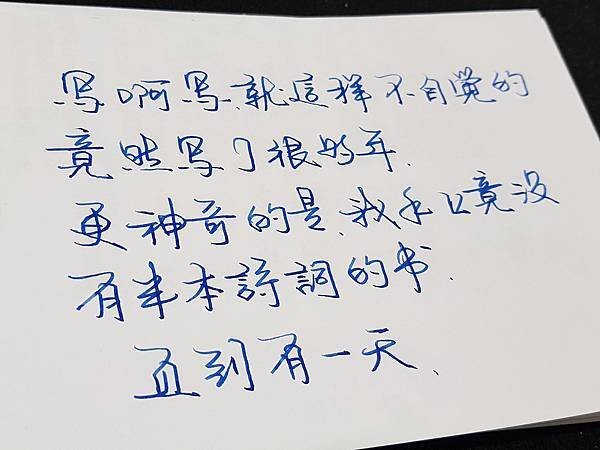 写啊写.就這样不自覺的
竟然写了很多年.
更神奇的是.我手上竟沒
有半本詩詞的书.
直到有一天.